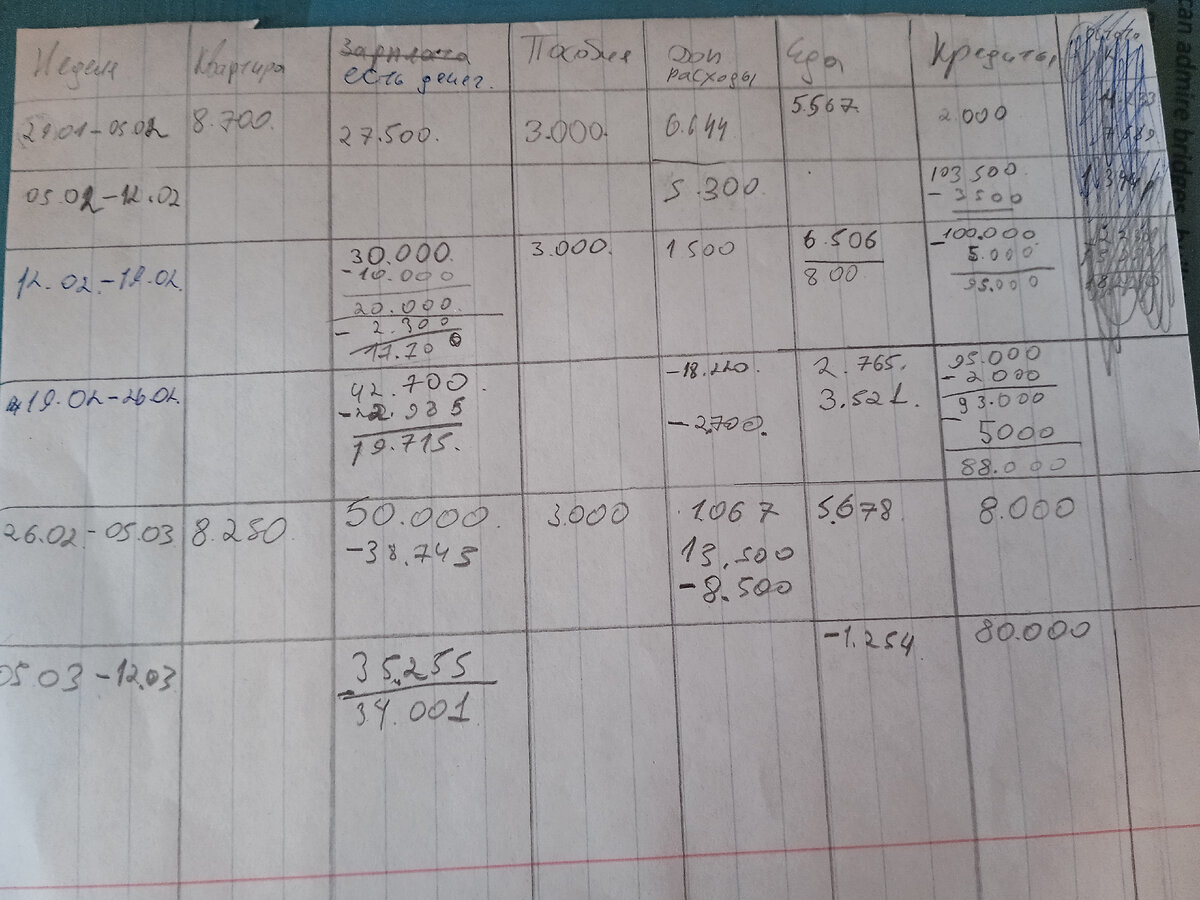 Неделя Квартира Зарплата Пособия Доп Еда Кредиты
есть денег. расходы
29.01-05.02 8.700. 27.500. 3.000. 6.644 5.567 2.000
05.02-12.02 5.300. 103 500
- 3500
12.02-19.02 30.000. 3.000. 1500 6.506 -100.000
-10.000 800 5.000
20.000. 95.000
- 2.300
17.700
19.02-26.02 42.700. -18.220. 2.765. 95.000
-22.985 -2.700. 3.521. - 2000
19.715. 93.000
- 5000
88.000
26.02-05.03 8.250. 50.000. 3.000 1.067 5.678 8.000
-38.745 13.500
-8.500
05.03-12.03 35.255 -1.254 80.000
34.001
can admire bridges